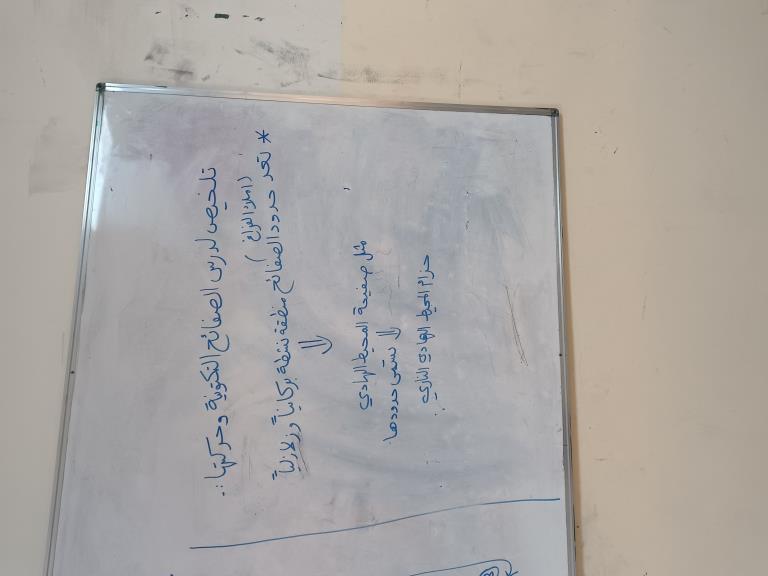 تلخيص لدرس الصفائح التكتونية وحركتها :.
(املأ الفراغ)
* تعد حدود الصفائح منطقة نشطة بركانياً وزلزالياً
مثل صفيحة المحيط الهادي
يسمى حدودها
حزام المحيط الهادي الناري